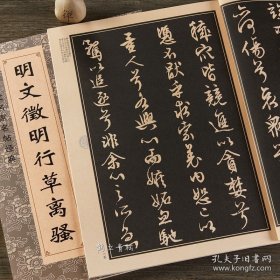 明文徵明行草离骚
何傷兮
穢衆皆競進以貪婪兮
憑不猒乎求索羌内恕己以
量人兮各興心而嫉妬忽馳
騖以追逐兮非余心之所急
孔夫子旧书网